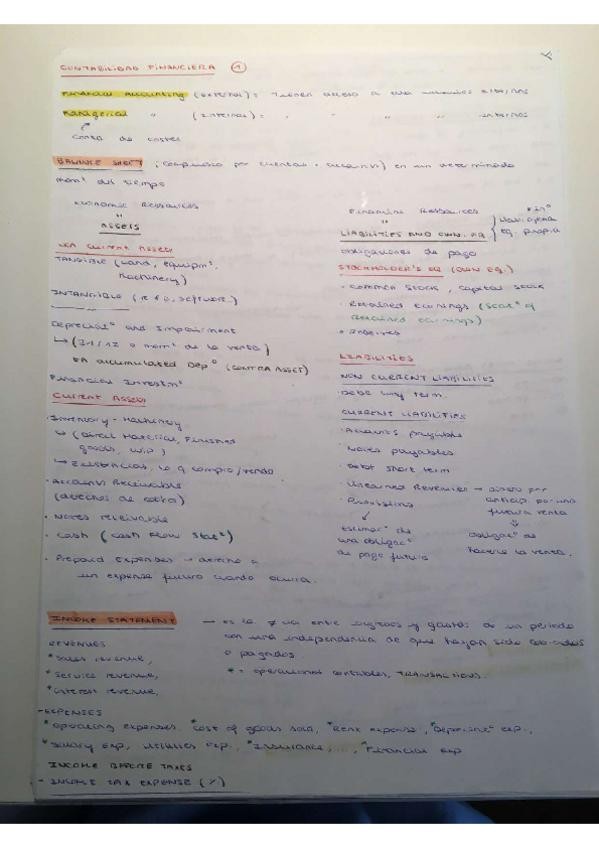 CONTABILIDAD FINANCIERA 1
Financial Accounting (external): Tienen acceso a ella usuarios externos
Managerial " (Internal): " " " " internos
Conta de costes
BALANCE SHEET
mom° del tiempo
Economic Ressources
"
ASSETS
NON CURRENT ASSETS
TANGIBLE (Land, equipm°, Machinery)
INTANGIBLE (R & D, software)
Depreciat° and Impairment
↳ (31/12 o mom° de la venta)
accumulated Dep° (CONTRA ASSET)
Financial Investm°
CURRENT ASSETS
· Inventory - Machinery
↳ (Direct Material, Finished
goods, WIP)
↳ Existencias, lo q compro/vendo
· Accounts Receivable
(derechos de cobro)
· Notes receivable
· Cash (Cash Flow Stat°)
· Prepaid Expenses → derecho a
un expense futuro cuando ocurra.
Financial Ressources
"
LIABILITIES AND OWN. EQ.
obligaciones de pago
STOCKHOLDER'S EQ (OWN EQ.)
· Common stock, capital stock
· Retained earnings (Stat° of
retained earnings)
LIABILITIES
NON CURRENT LIABILITIES
· Debt long term.
CURRENT LIABILITIES
· Accounts payable
· Notes payables
· Debt short term
· Unearned Revenues → dinero por
anticip. por una
futura venta
⇓
obligac° de
hacerle la venta.
· Provisions
↙
Estimac° de
una obligac°
de pago futuro
INCOME STATEMENT → es la ≠ cia entre ingresos y gastos de un periodo
con una independencia de que hayan sido cobrados
o pagados.
* = operaciones contables, TRANSACTIONS.
REVENUES
* Sales revenue,
* Service revenue,
* Interest revenue,
- EXPENSES
* Operating expenses. * Cost of goods sold, * Rent expense, * Depreciat° exp.,
* Salary exp, Utilities exp., * Insurance, ..., * Financial exp
INCOME BEFORE TAXES
- INCOME TAX EXPENSE (%)